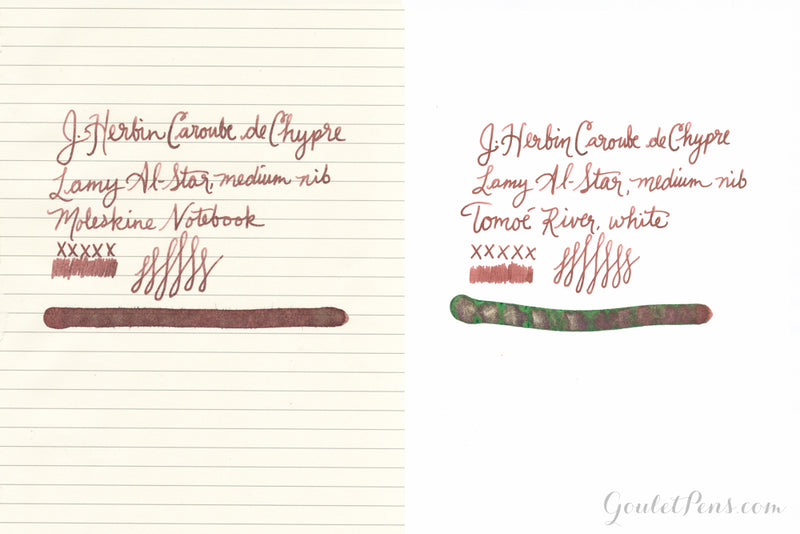 J. Herbin Caroube de Chypre
Lamy Al-Star, medium nib
Moleskine Notebook
XXXXX
J. Herbin Caroube de Chypre
Lamy Al-Star, medium nib
Tomoé River, white
XXXXX
GouletPens.com